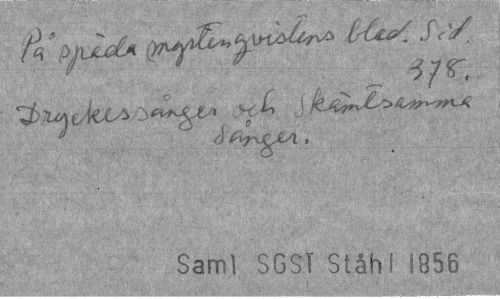 På späda myrtenqvistens blad. Sid.
378.
Dryckessånger och skämtsamma
Sånger.
Saml SGST Ståhl 1856